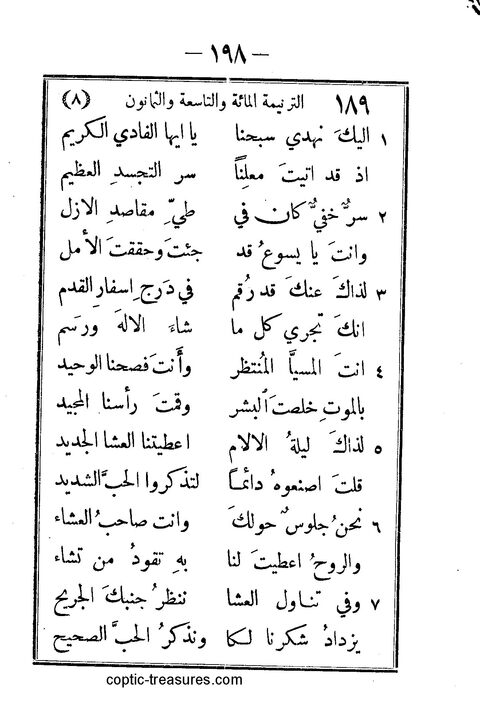 — ١٩٨ —
١٨٩ الترنيمة المائة والتاسعة والثمانون (٨)
١ اليكَ نهدي سبحنا يا ايها الفادي الكريم
اذ قد اتيتَ معلِنًا سر التجسدِ العظيم
٢ سرٌّ خفيٌّ كان في طيِّ مقاصدِ الازل
وانتَ يا يسوعُ قد جئتَ وحققتَ الأمل
٣ لذاكَ عنكَ قد رُقم في دَرجِ اسفارِ القدم
انكَ تجري كل ما شاءَ الالهَ ورسَم
٤ انتَ المسيَّا المُنتظر وأَنتَ فصحنا الوحيد
بالموتِ خلصتَ البشر وقمتَ رأسنا المجيد
٥ لذاكَ ليلةُ الالام اعطيتنا العشا الجديد
قلتَ اصنعوهُ دائمًا لتذكروا الحبَّ الشديد
٦ نحنُ جلوسٌ حولكَ وانت صاحبُ العشاء
والروحُ اعطيتَ لنا بهِ تقودُ من تشاء
٧ وفي تناول العشا ننظرُ جنبكَ الجريح
يزدادُ شكرنا لكا ونذكرُ الحبَّ الصحيح
coptic-treasures.com